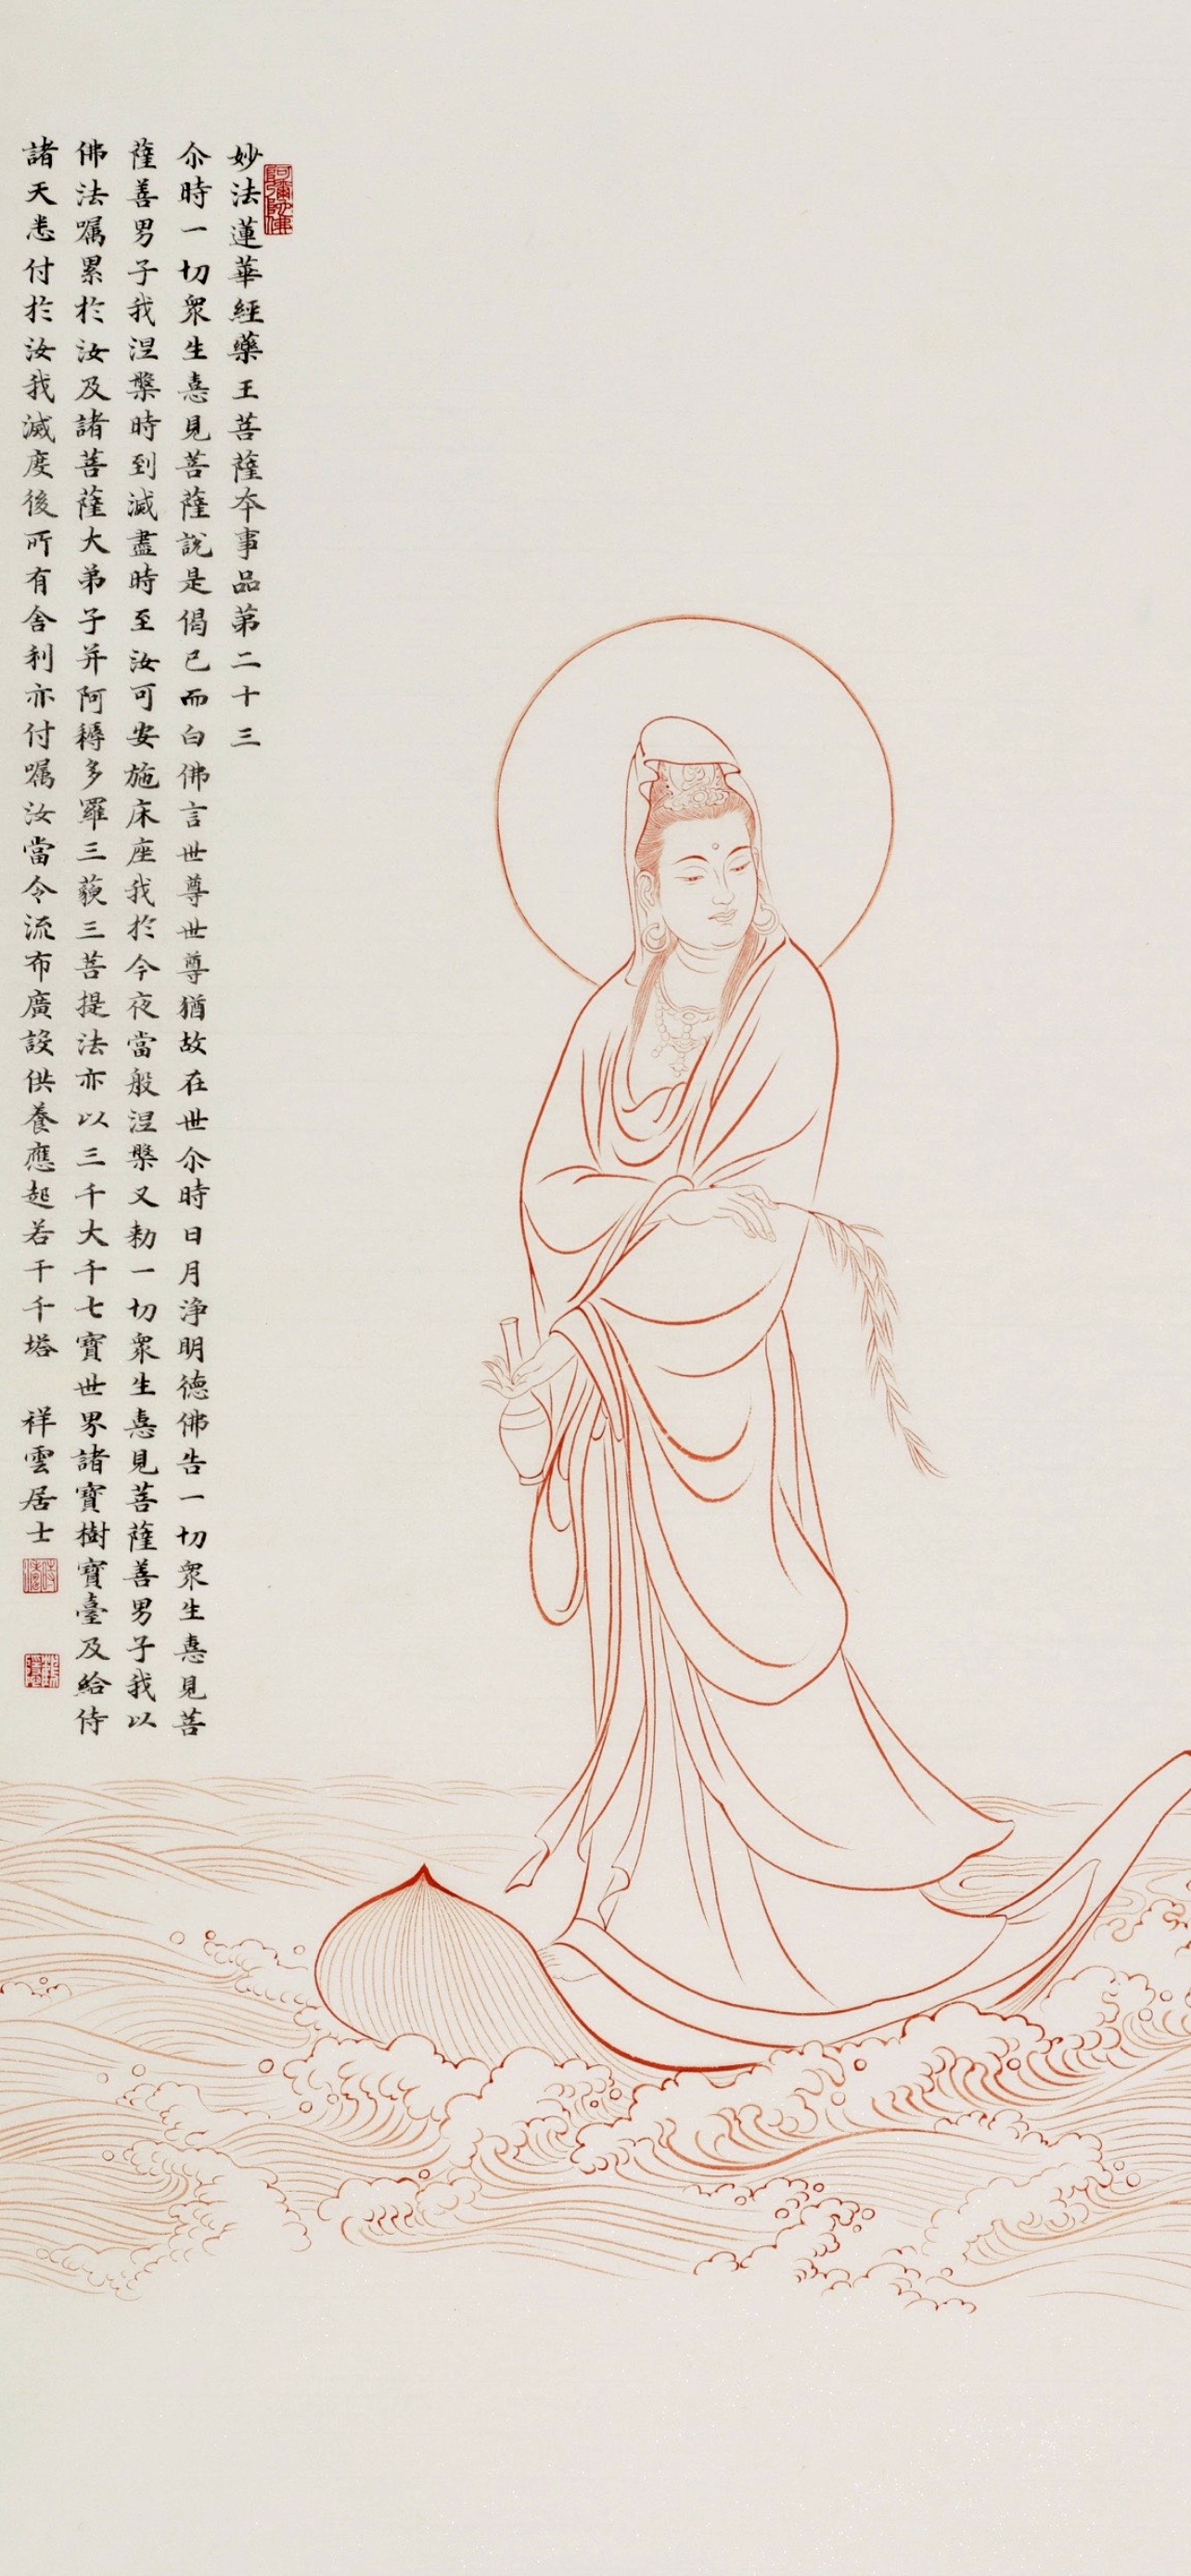 妙法蓮華經藥王菩薩本事品第二十三
尒時一切衆生憙見菩薩說是偈已而白佛言世尊世尊猶故在世尒時日月淨明德佛告一切衆生憙見菩
薩善男子我涅槃時到滅盡時至汝可安施床座我於今夜當般涅槃又勅一切衆生憙見菩薩善男子我以
佛法囑累於汝及諸菩薩大弟子并阿耨多羅三藐三菩提法亦以三千大千七寶世界諸寶樹寶臺及給侍
諸天悉付於汝我滅度後所有舍利亦付囑汝當令流布廣設供養應起若干千塔 祥雲居士
阿彌陀佛